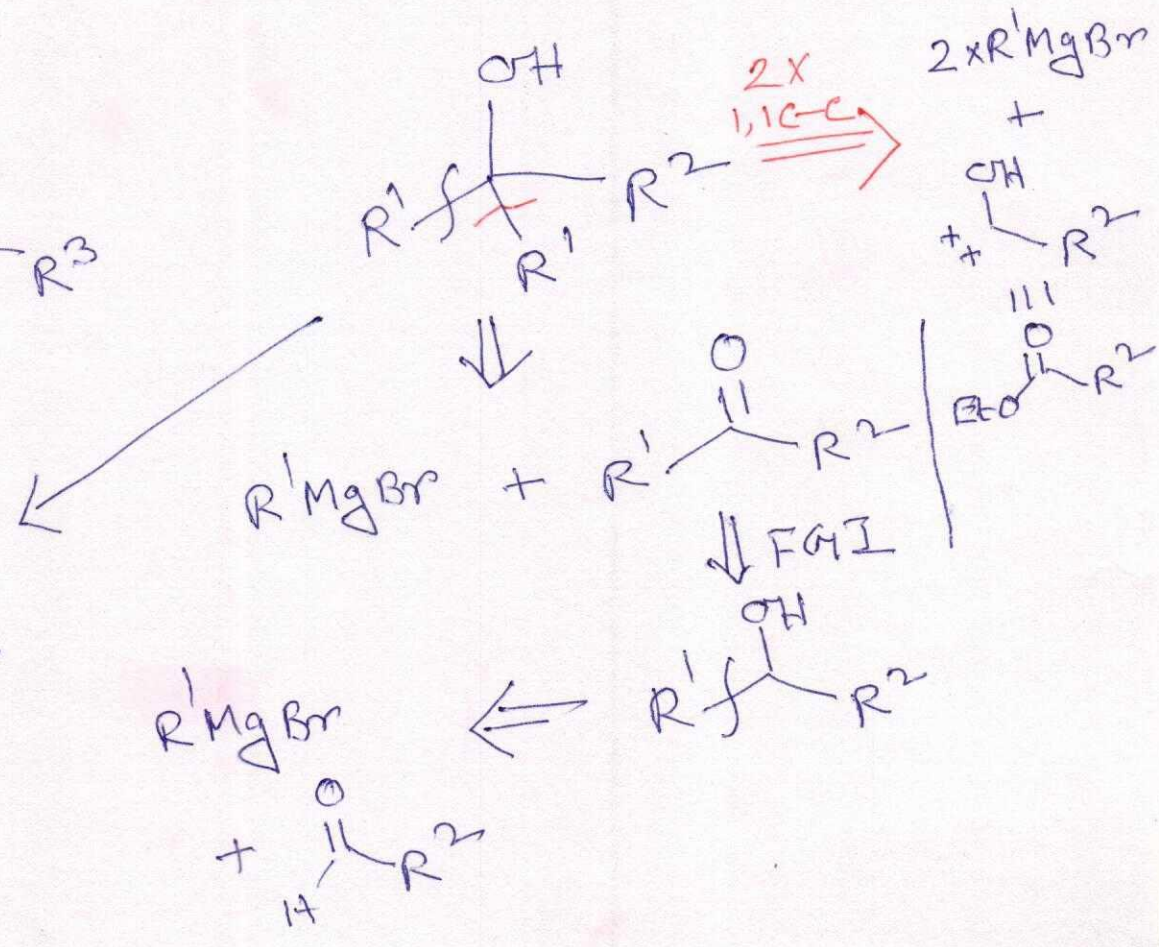 OH
R¹ R²
R¹
2x
1,1 C-C
2xR¹MgBr
+
OH
++ R²
O
EtO R²
R³
R¹MgBr + R¹ R²
O
FGI
OH
R¹ R²
R¹MgBr
+
O
H R²